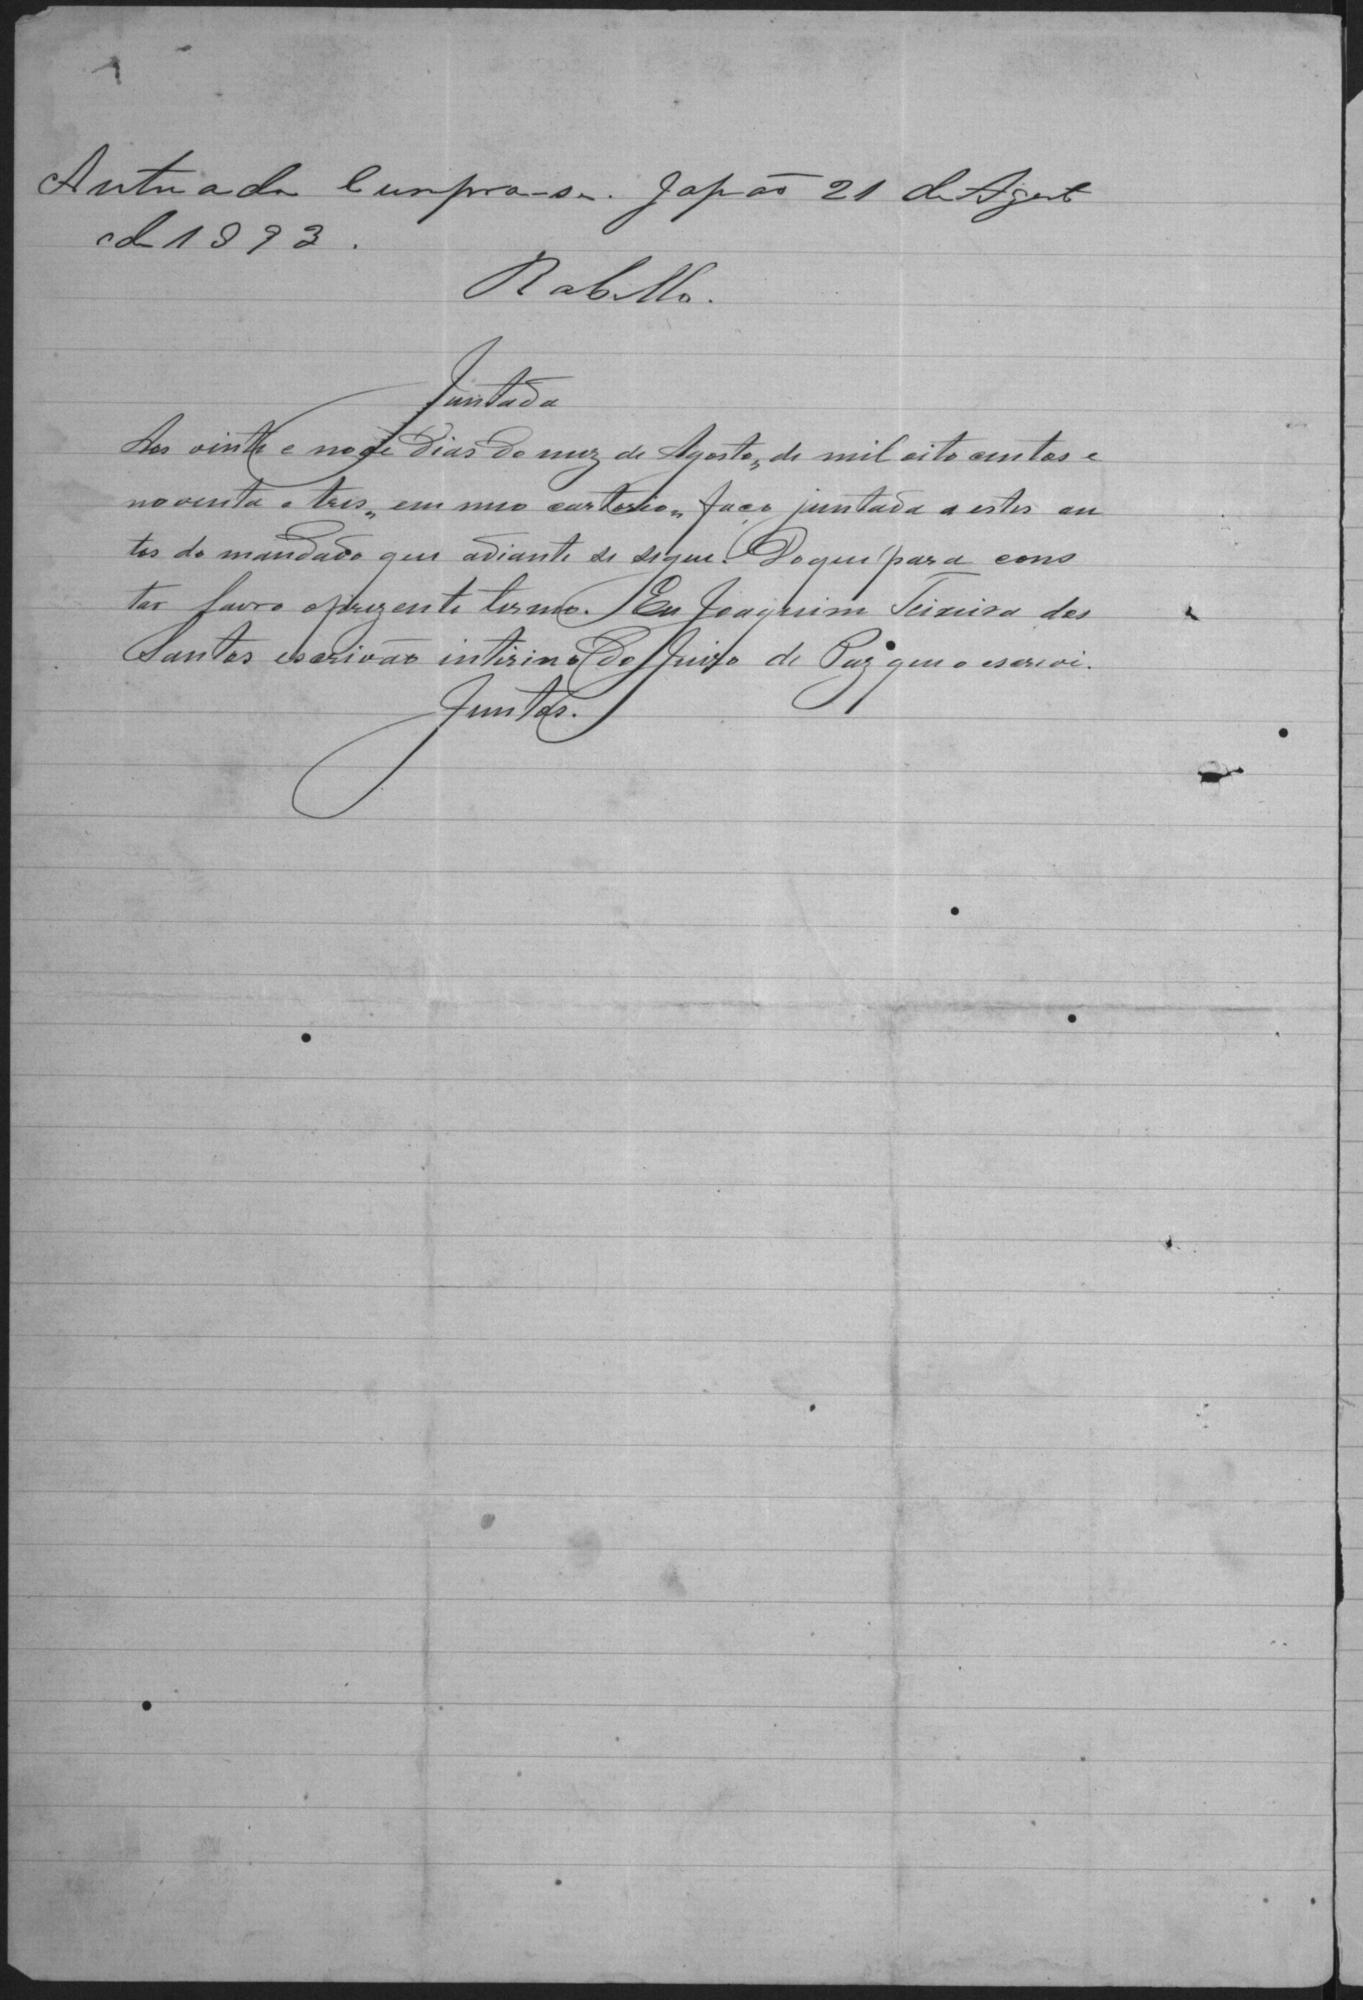 Autuada Cumpra-se. Japão 21 de Agost
de 1893.
Rabello.
Juntada
Aos vinte e nove dias do mez de Agosto, de mil oito centos e
noventa e tres, em meo cartorio, faço juntada a estes au
tos do mandado que adiante se segue. Do que para cons
tar lavro o prezente termo. Eu Joaquim Teixeira dos
Santos escrivão intirino do Juizo de Paz que o escrevi.
Juntos.